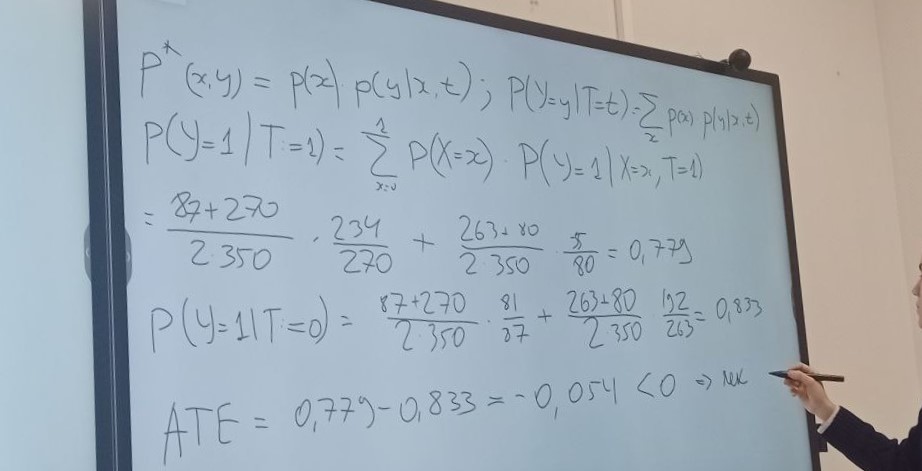 P*(x,y) = p(x) p(y|x,t); P(Y=y|T=t)=∑ₓ p(x) p(y|x,t)
P(Y=1|T:=1) = ∑ₓ₌₀¹ P(X=x) · P(Y=1|X=x, T=1)
= (87+270)/(2·350) · 234/270 + (263+80)/(2·350) · 55/80 = 0,779
P(Y=1|T:=0) = (87+270)/(2·350) · 81/87 + (263+80)/(2·350) 192/263 = 0,833
ATE = 0,779-0,833 = -0,054 < 0 ⇒